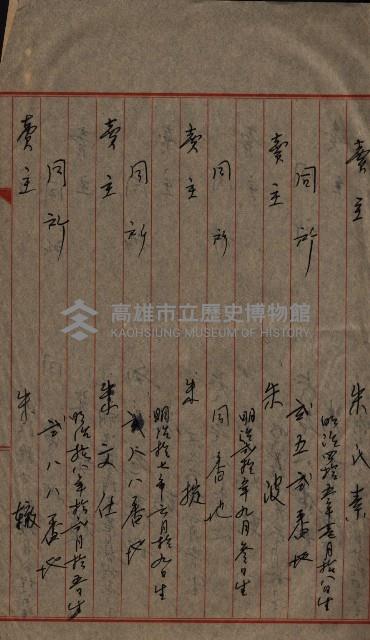 賣主 朱氏奉
明治四拾五年壱月拾八日生
同所 弍五弍番地
賣主 朱波
明治弍拾年九月参日生
同所 同番地
賣主 朱撥
明治拾七年六月拾九日生
同所 弍八八番地
賣主 朱文仕
明治拾八年拾弍月拾五日生
同所 弍八八番地
賣主 朱轍
高雄市立歷史博物館
KAOHSIUNG MUSEUM OF HISTORY